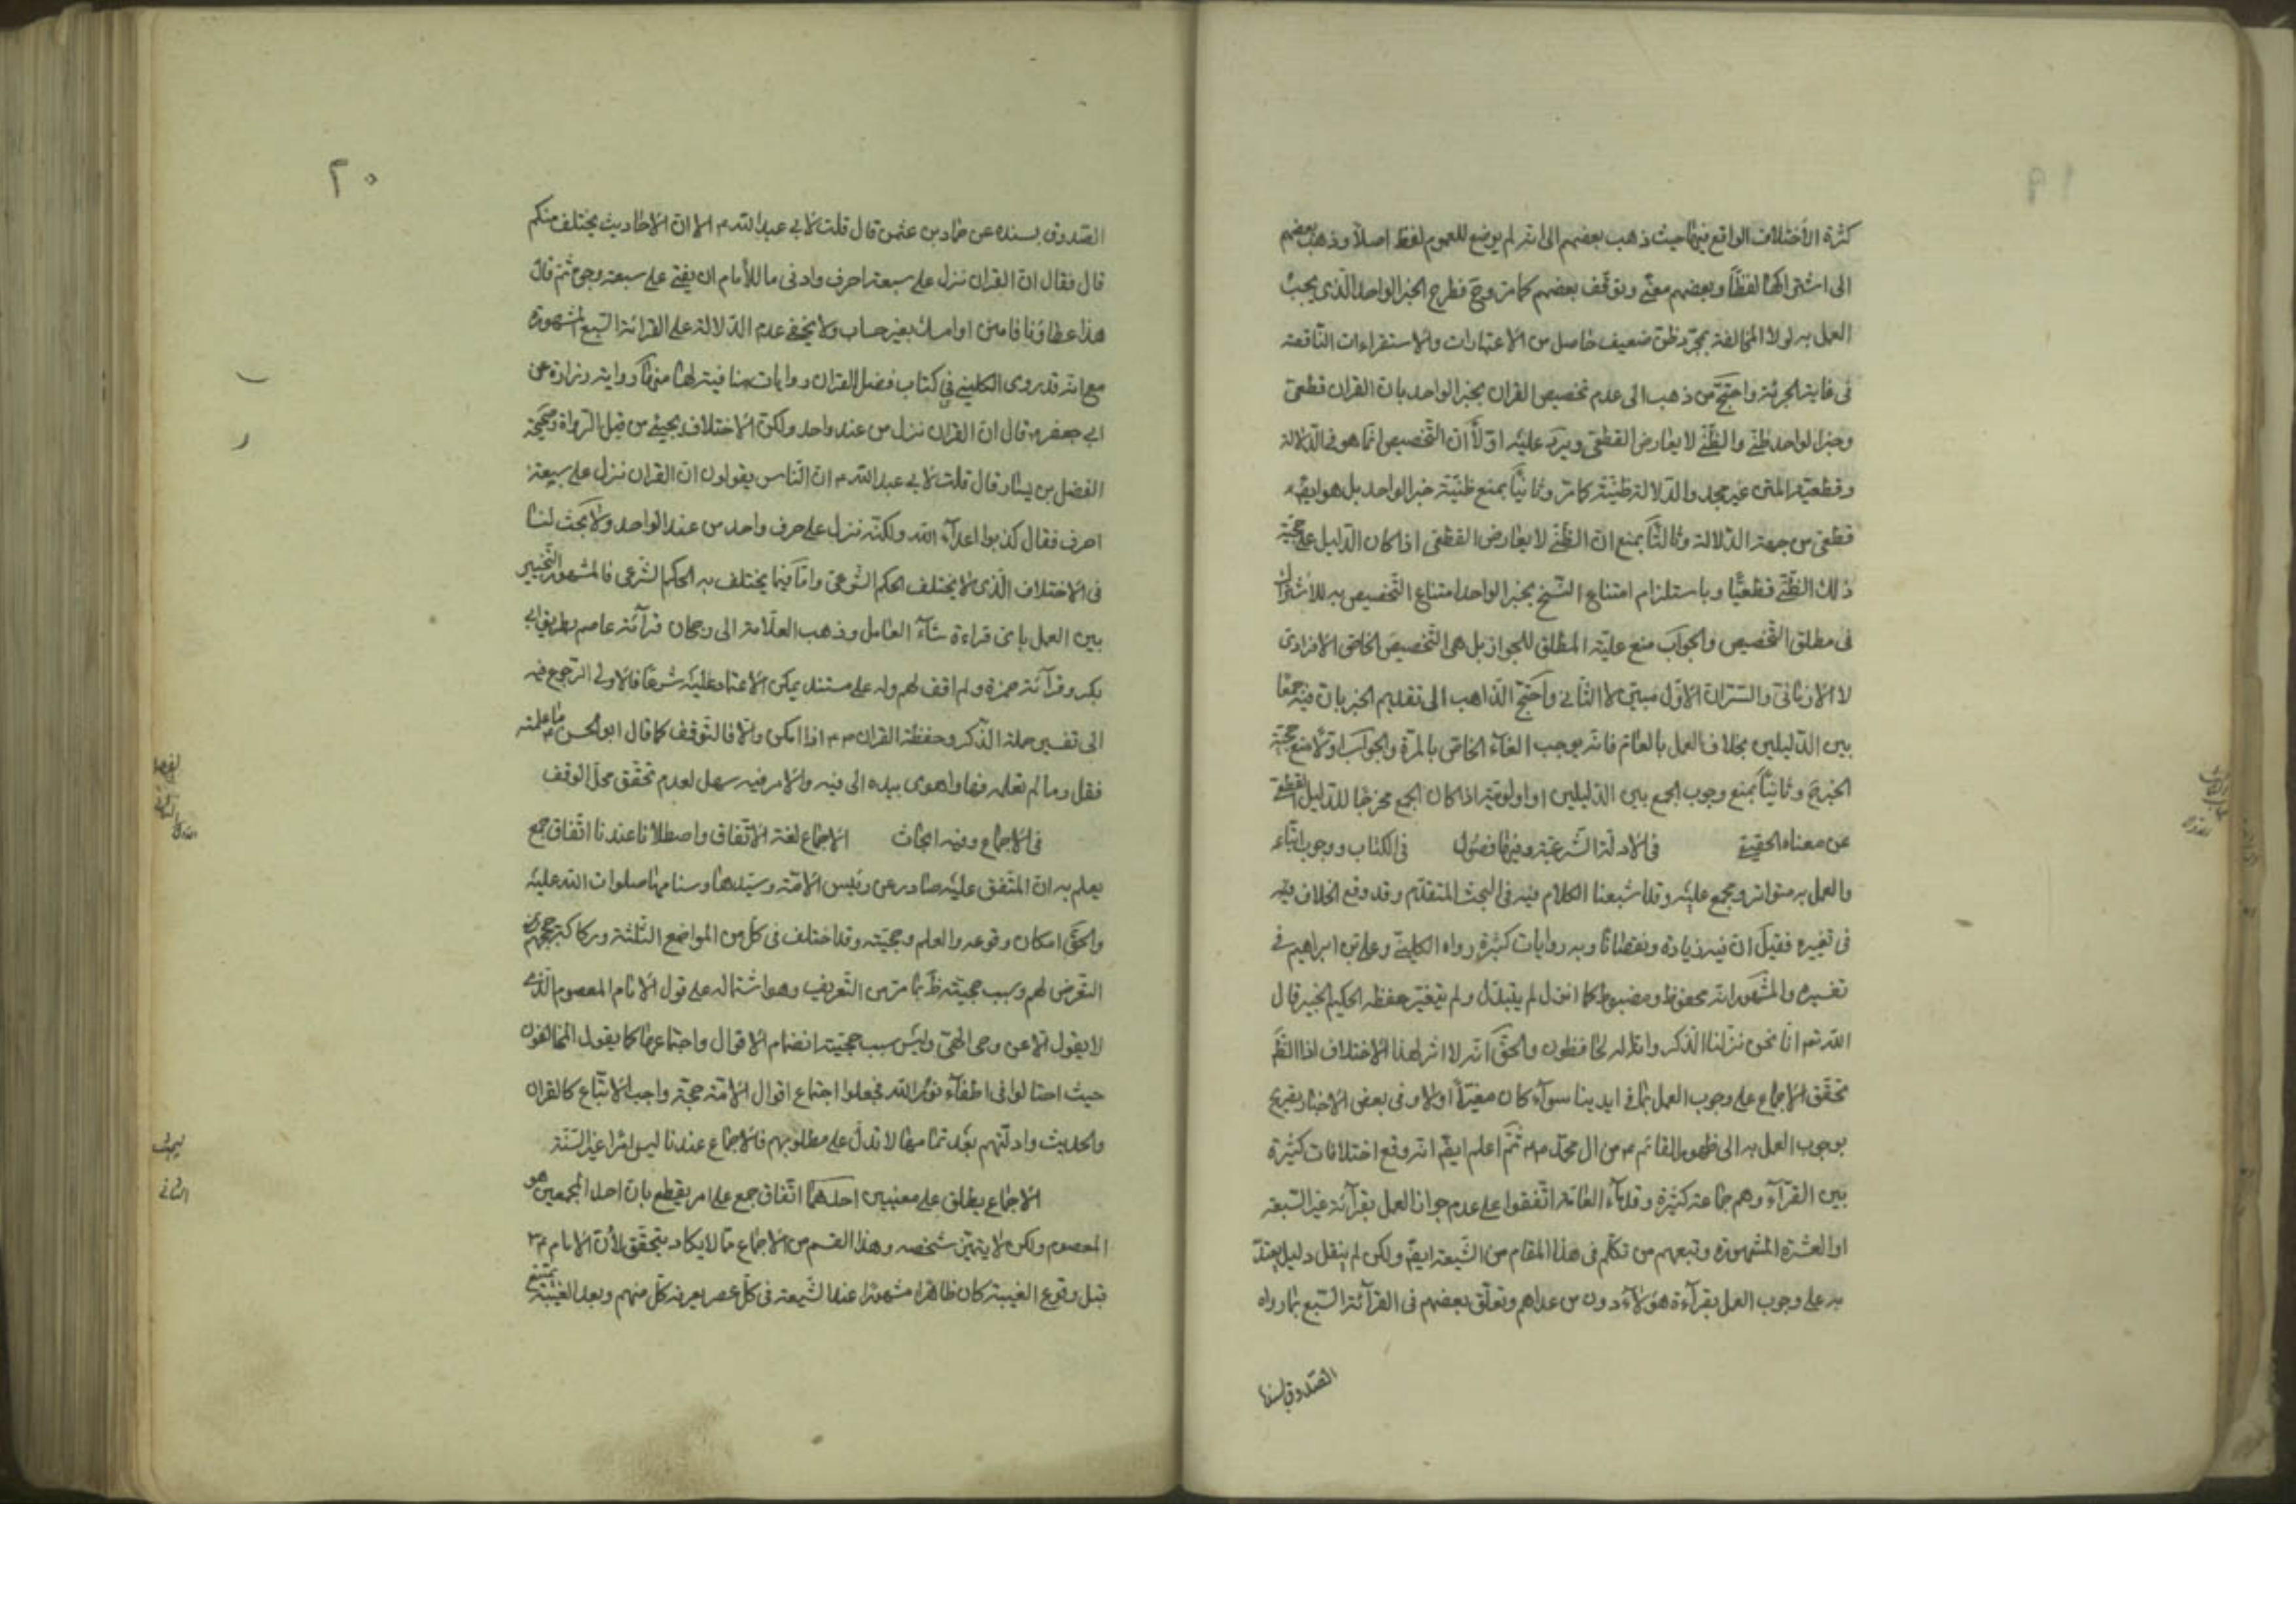 ١٩
كثرة الاختلاف الواقع فيها حيث ذهب بعضهم الى انه لم يوضع للعموم لفظ اصلا وذهب بعضهم
الى اشتراكها لفظا وبعضهم معنى وتوقف بعضهم كما مر وح فطرح الخبر الواحد الذى يجب
العمل به لولا المخالفة بمجرد ظن ضعيف حاصل من الاعتبارات والاستقراءات الناقصة
فى غاية الجرئة واحتج من ذهب الى عدم تخصيص القران بخبر الواحد بان القران قطعى
وخبر الواحد ظنى والظنى لا يعارض القطعى ويرد عليه اولا ان التخصيص انما هو فى الدلالة
وقطعية المتن غير مجد والدلالة ظنية كما مر وثانيا بمنع ظنية خبر الواحد بل هو ايضا
قطعى من جهة الدلالة وثالثا بمنع ان الظنى لا يعارض القطعى اذا كان الدليل على حجية
ذلك الظنى قطعيا وباستلزام امتناع النسخ بخبر الواحد امتناع التخصيص به للاشتراك
فى مطلق التخصيص والجواب منع علية المطلق للجواز بل هى التخصيص الخاص الافرادى
لا الازمانى والسر ان الاول مبين لا الثانى واحتج الذاهب الى تقديم الخبر بان فيه جمعا
بين الدليلين بخلاف العمل بالعام فانه يوجب الغاء الخاص بالمرة والجواب اولا منع حجية
الخبر ح وثانيا بمنع وجوب الجمع بين الدليلين او اولويته اذا كان الجمع مخرجا للدليل القطعى
عن معناه الحقيقى فى الادلة الشرعية وفيها فصول فى الكتاب ووجوب اتباعه
والعمل به متواتر ومجمع عليه وقد اشبعنا الكلام فيه فى البحث المتقدم وقد وقع الخلاف فيه
فى تغييره فقيل ان فيه زيادة ونقصانا وبه روايات كثيرة رواه الكلينى وعلى بن ابراهيم فى
تفسيره والمشهور انه محفوظ ومضبوط كما انزل لم يتبدل ولم يتغير حفظه الحكيم الخبير قال
الله تعم انا نحن نزلنا الذكر وانا له لحافظون والحق انه لا اثر لهذا الاختلاف اذ الظ
تحقق الاجماع على وجوب العمل بما فى ايدينا سواء كان مغيرا او لا وفى بعض الاخبار تصريح
بوجوب العمل به الى ظهور القائم ع من ال محمد ع ثم اعلم ايضا انه وقع اختلافات كثيرة
بين القراء وهم جماعة كثيرة وقدماء العامة اتفقوا على عدم جواز العمل بقرائة غير السبعة
او العشرة المشهورة وتبعهم من تكلم فى هذا المقام من الشيعة ايضا ولكن لم ينقل دليل يعتد
به على وجوب العمل بقراءة هؤلاء دون من عداهم وتعلق بعضهم فى القرائة السبع بما رواه
الصدوق بسنده
٢٠
الصدوق بسنده عن حماد بن عثمن قال قلت لابى عبد الله ع الا ان الاحاديث يختلف منكم
قال فقال ان القران نزل على سبعة احرف وادنى ما للامام ان يفتى على سبعة وجوه ثم قال
هذا عطاؤنا فامنن او امسك بغير حساب ولا يخفى عدم الدلالة على القرائة السبع المشهورة
مع انه قد روى الكلينى فى كتاب فضل القران روايات منافية لها منها رواية زرارة عن
ابى جعفر ع قال ان القران نزل من عند واحد ولكن الاختلاف يجيئ من قبل الرواة وصحيحة
الفضل بن يسار قال قلت لابى عبد الله ع ان الناس يقولون ان القران نزل على سبعة
احرف فقال كذبوا اعداء الله ولكنه نزل على حرف واحد من عند الواحد ولا بحث لنا
فى الاختلاف الذى لا يختلف الحكم الشرعى واما فيما يختلف به الحكم الشرعى فالمشهور التخيير
بين العمل باى قراءة شاء العامل وذهب العلامة الى رجحان قرائة عاصم بطريق ابى
بكر وقرائة حمزة ولم اقف لهم وله على مستند يمكن الاعتماد عليه شرعا فالاولى الرجوع فيه
الى تفسير حملة الذكر وحفظة القران ع اذا امكن والا فالتوقف كما قال ابو الحسن ع ما علمته
فقل وما لم تعلمه فها واهوى بيده الى فيه والامر فيه سهل لعدم تحقق محل الوقف
فى الاجماع وفيه ابحاث الاجماع لغة الاتفاق واصطلاحا عندنا اتفاق جمع
يعلم به ان المتفق عليه صادر عن رئيس الامة وسيدها وسنامها صلوات الله عليه
والحق امكان وقوعه والعلم به وحجيته وقد اختلف فى كل من المواضع الثلثة وركاكة حججهم
التعرض لهم وسبب حجيته ظ بما مر من التعريف وهو اشتماله على قول الامام المعصوم الذى
لا يقول الا عن وحى الهى وليس سبب حجيته انضمام الاقوال واجتماعها كما يقول المخالفون
حيث احتالوا فى اطفاء نور الله فجعلوا اجتماع اقوال الامة حجة واجب الاتباع كالقران
والحديث وادلتهم بعد تمامها لا تدل على مطلوبهم فالاجماع عندنا ليس امرا غير السنة
الاجماع يطلق على معنيين احدهما اتفاق جمع على امر يقطع بان احد المجمعين هو
المعصوم ولكن لا يتعين شخصه وهذا القسم من الاجماع مما لا يكاد يتحقق لان الامام ع
قبل وقوع الغيبة كان ظاهرا مشهورا عند الشيعة فى كل عصر يعرفه كل منهم وبعد الغيبة يمتنع
البحث
الثانى